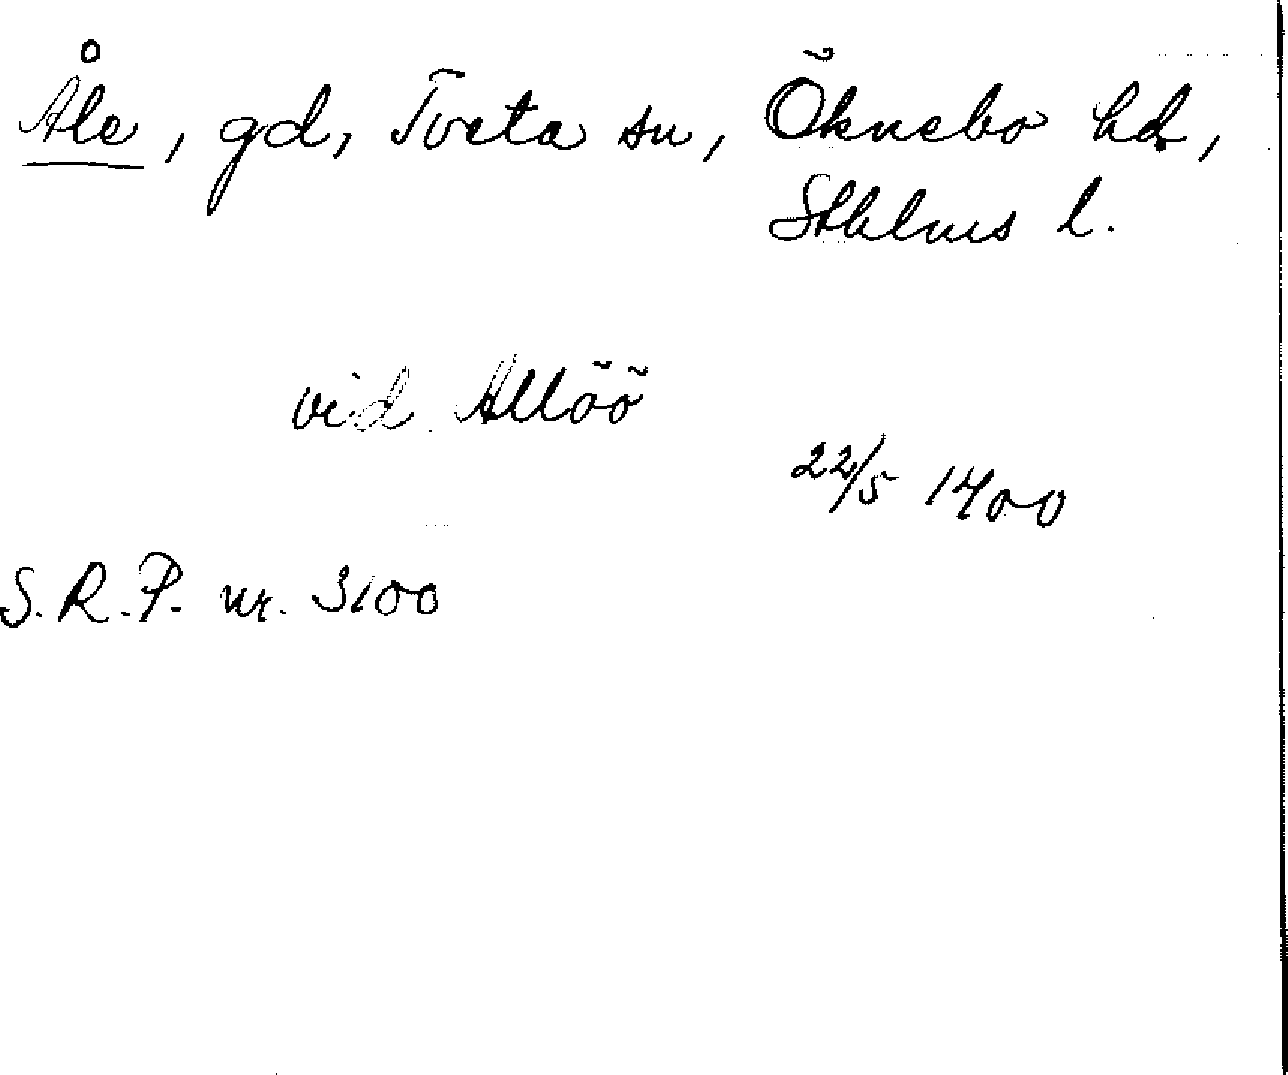 Åle, gd, Tveta sn, Öknebo hd,
Sthlms l.
vid Allöö
22/5 1400
S.R.P. nr. 3100